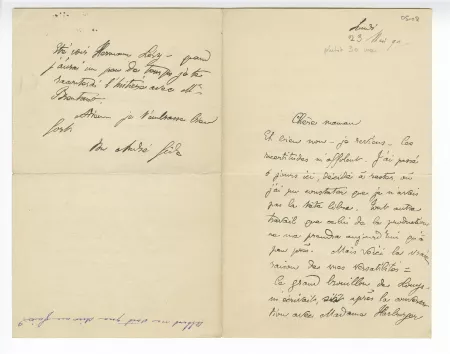 Lundi
23 Mai 90
Chère maman
Et bien non - je reviens - ces
incertitudes m'affolent. J'ai passé
6 jours ici, décidé à rester où
j'ai pu constater que je n'avais
pas la tête libre. Tout autre
travail que celui de la production
ne me prendra aujourd'hui qu'à
peu près. Mais voici la vraie
raison de mes versatilités =
le grand brouillon de Louys
m'écrivait, après la conversa
tion avec Madame
été voir Hermann - quand
j'aurai un peu de temps je te
raconterai l'histoire avec Mr
Adieu je t'embrasse bien
fort.
Ton André Gide